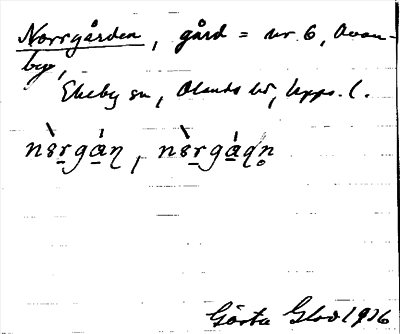 Norrgården, gård = nr. 6, Ovan-
by,
Ekeby sn, Olands hd, Upps. l.
nòrgán, nòrgádn
Gösta 1916